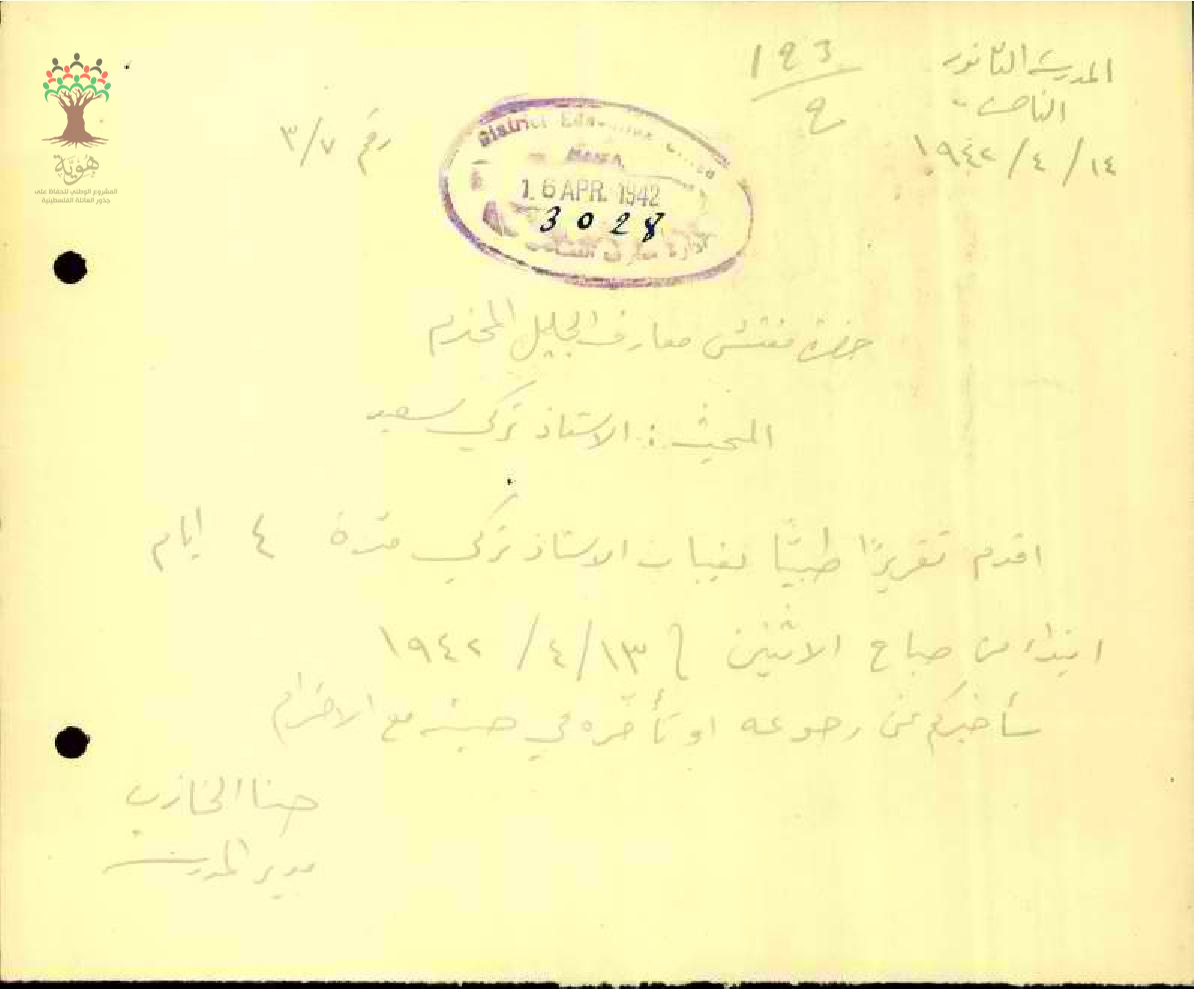 المدرسة الثانوية
الناصرة
١٤ / ٤ / ١٩٤٢
193
9
رقم ٣/٧
District Education Office
HAIFA.
16 APR. 1942
3028
ادارة معارف
هُوِيَّة
المشروع الوطني للحفاظ على
جذور العائلة الفلسطينية
حضرة مفتش معارف الجليل المحترم
المبحث : الاستاذ تركي سعيد
اقدم تقريرًا طبيًا بغياب الاستاذ تركي مدة ٤ ايام
ابتداء من صباح الاثنين ١٣/٤/ ١٩٤٢
سأخبركم عن رجوعه او تأخره في حينه مع الاحترام
حنا الخازن
مدير المدرسة